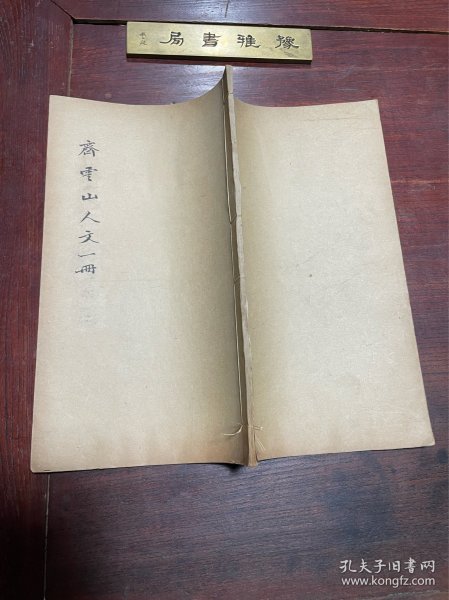 局書雅豫
齊雲山人文一冊
孔夫子旧书网
www.kongfz.com